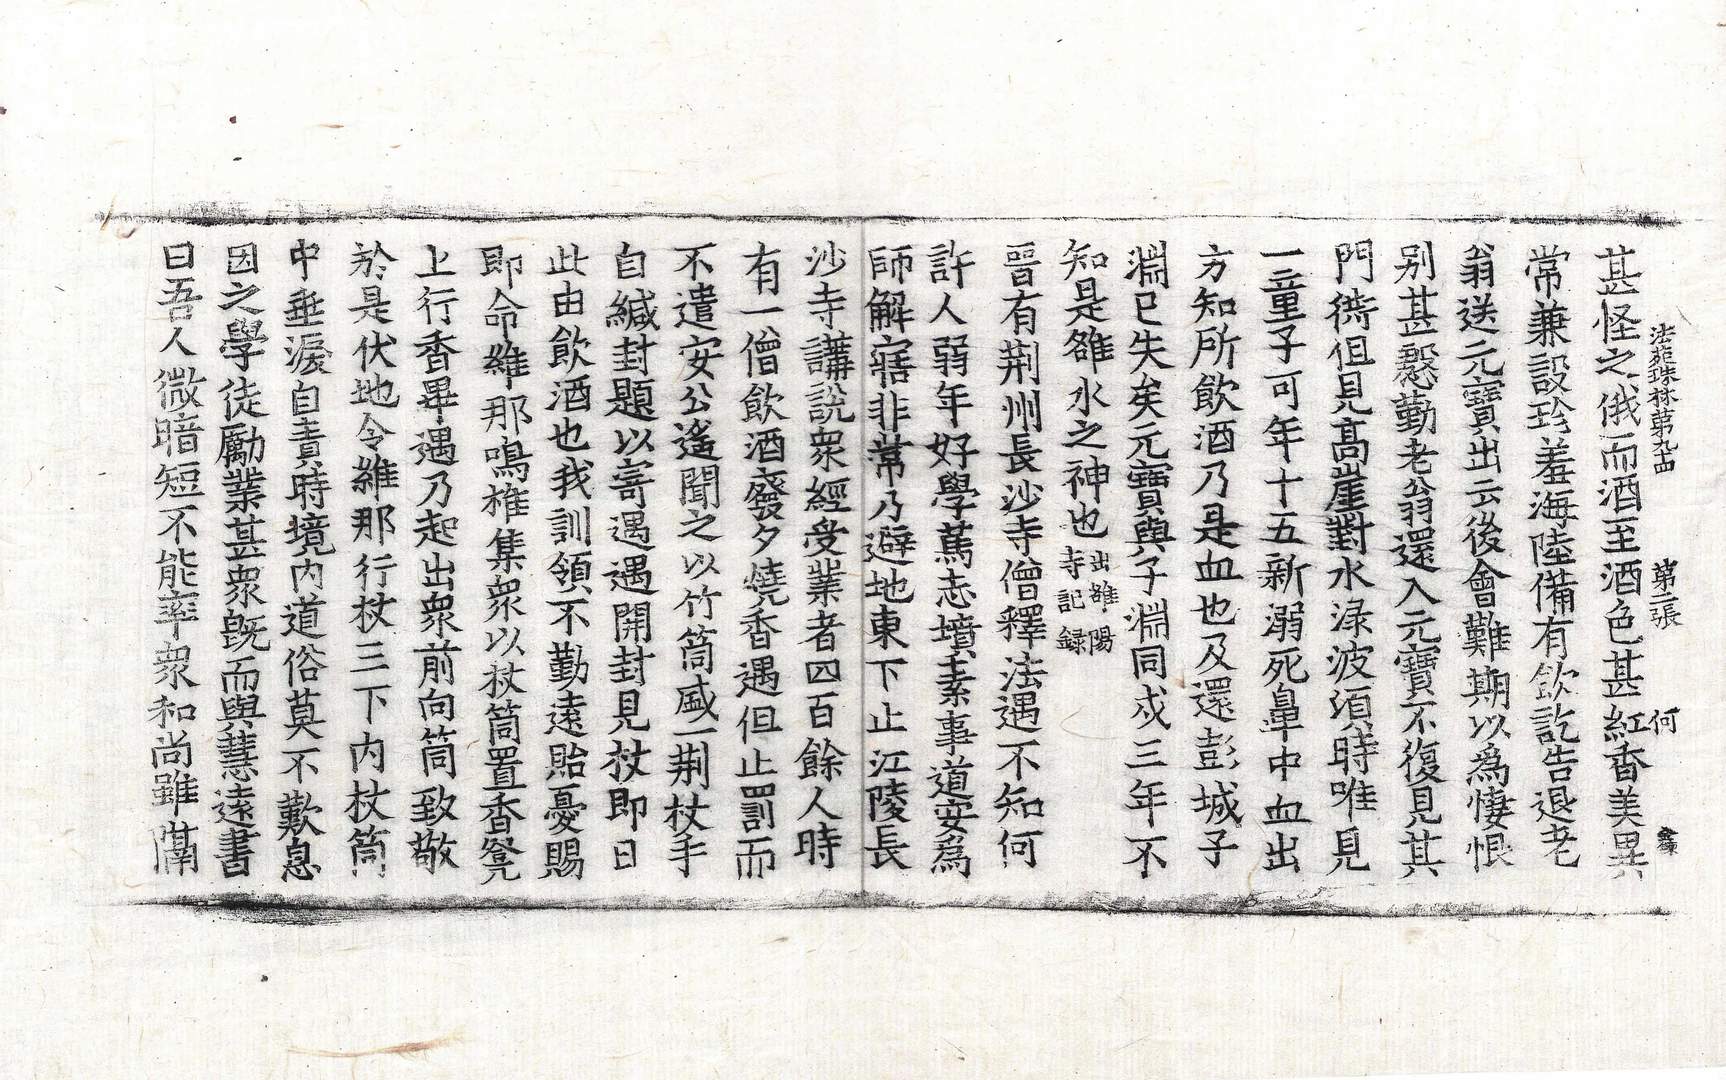 法苑珠林第九十四　第二張　何
甚怪之俄而酒至酒色甚紅香美異
常兼設珍羞海陸備有飲訖告退老
翁送元寶出云後會難期以爲悽恨
别甚慇勤老翁還入元寶不復見其
門衖但見高崖對水渌波湏時唯見
一童子可年十五新溺死鼻中血出
方知所飲酒乃是血也及還彭城子
淵已失矣元寶與子淵同戍三年不
知是雒水之神也出雒陽寺記録
晉有荆州長沙寺僧釋法遇不知何
許人弱年好學篤志墳素事道安爲
師解寤非常乃避地東下止江陵長
沙寺講說衆經受業者四百餘人時
有一僧飲酒廢夕燒香遇但止罰而
不遣安公遙聞之以竹筒盛一荆杖手
自緘封題以寄遇遇開封見杖即曰
此由飲酒也我訓領不勤遠貽憂賜
即命維那鳴椎集衆以杖筒置香凳
上行香畢遇乃起出衆前向筒致敬
於是伏地令維那行杖三下内杖筒
中垂淚自責時境内道俗莫不歎息
因之學徒勵業甚衆旣而與慧遠書
曰吾人微暗短不能率衆和尚雖隔